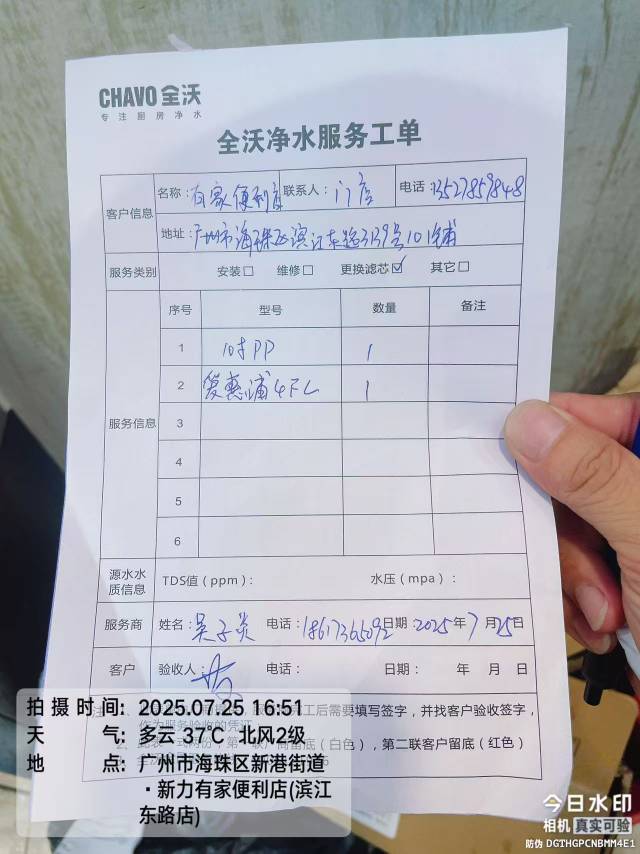 CHAVO 全沃
专注厨房净水
全沃净水服务工单
客户信息 名称：有家便利店 联系人：门店 电话：13527859848
地址：广州市海珠区滨江东路3139号101铺
服务类别 安装□ 维修□ 更换滤芯☑ 其它□
服务信息 序号 型号 数量 备注
1 10寸PP 1
2 爱惠浦4FC 1
3
4
5
6
源水水质信息 TDS值（ppm）： 水压（mpa）：
服务商 姓名： 电话：18617365092 日期：2025年7月25日
客户 验收人： 电话： 日期： 年 月 日
工后需要填写签字，并找客户验收签字，
作为服务验收的凭证
留底（白色），第二联客户留底（红色）
拍摄时间：2025.07.25 16:51
天气：多云 37℃ 北风2级
地点：广州市海珠区新港街道
·新力有家便利店(滨江
东路店)
今日水印
相机 真实可验
防伪 DGTHGPCNBMM4E1